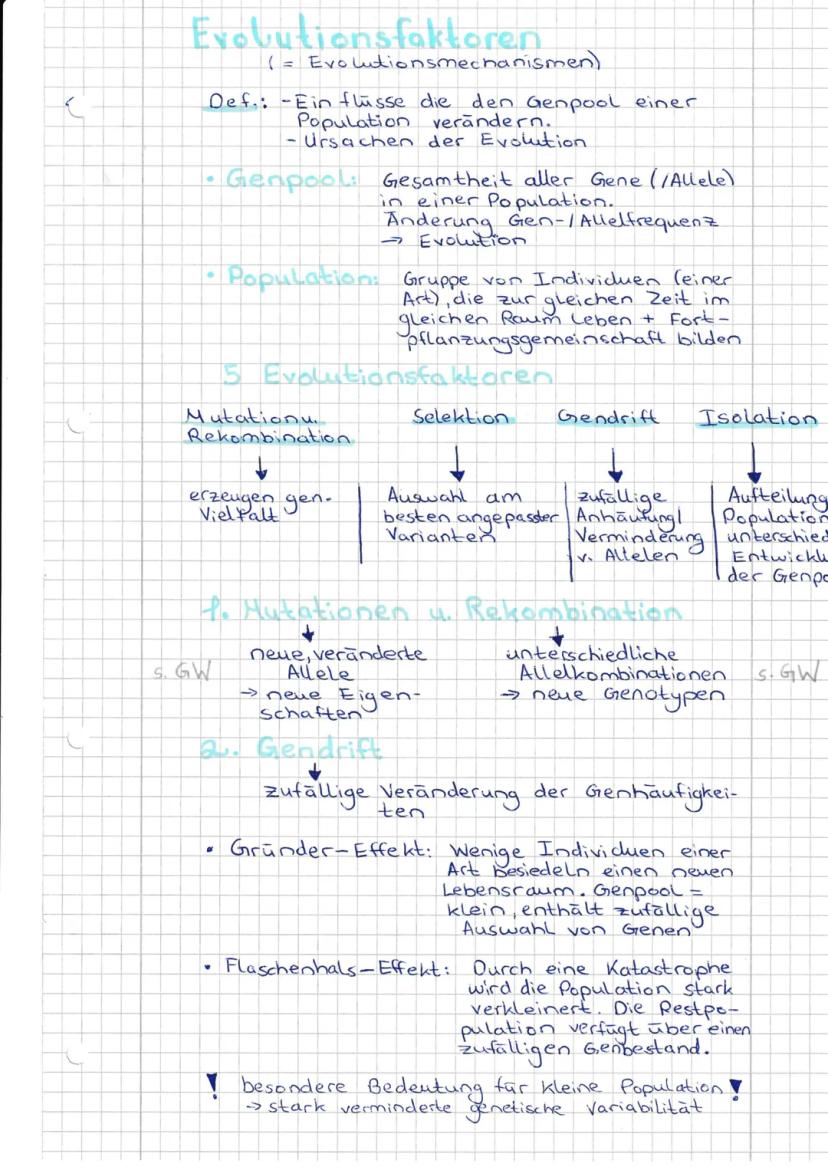 Evolutionsfaktoren
( = Evolutionsmechanismen)
Def.: - Einflüsse die den Genpool einer
Population verändern.
- Ursachen der Evolution
• Genpool: Gesamtheit aller Gene (/Allele)
in einer Population.
Änderung Gen-/Allelfrequenz
→ Evolution
• Population: Gruppe von Individuen (einer
Art), die zur gleichen Zeit im
gleichen Raum leben + Fort-
pflanzungsgemeinschaft bilden
5 Evolutionsfaktoren
Mutation u. Selektion Gendrift Isolation
Rekombination
erzeugen gen. Auswahl am zufällige Aufteilung
Vielfalt besten angepasster Anhäufung/ Population
Varianten Verminderung unterschied
v. Allelen Entwickl
der Genpo
1. Mutationen u. Rekombination
neue, veränderte unterschiedliche
s. GW Allele Allelkombinationen s. GW
→ neue Eigen- → neue Genotypen
schaften
2. Gendrift
zufällige Veränderung der Genhäufigkei-
ten
• Gründer-Effekt: Wenige Individuen einer
Art besiedeln einen neuen
Lebensraum. Genpool =
klein, enthält zufällige
Auswahl von Genen
• Flaschenhals-Effekt: Durch eine Katastrophe
wird die Population stark
verkleinert. Die Restpo-
pulation verfügt über einen
zufälligen Genbestand.
! besondere Bedeutung für kleine Population !
→ stark verminderte genetische Variabilität